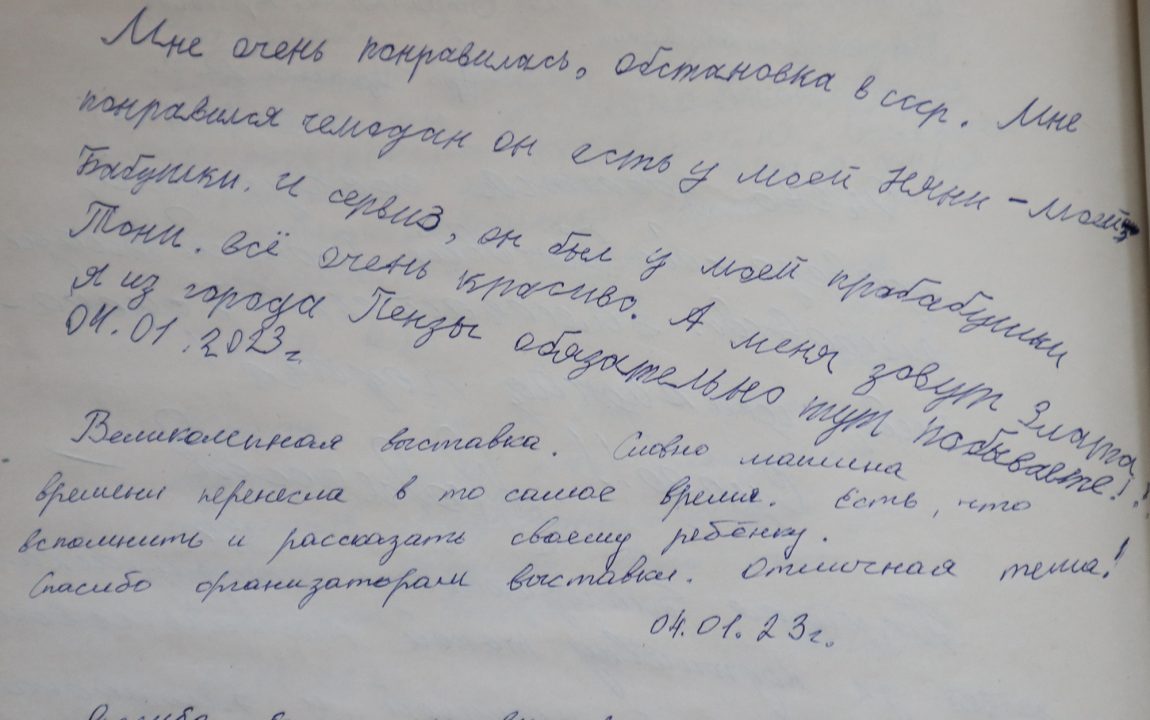 Мне очень понравилась, обстановка в ссср. Мне
понравился чемодан он есть у моей Няни - моей
Бабушки. и сервиз, он был у моей прабабушки
Тони. всё очень красиво. А меня зовут Злата
я из города Пензы обязательно тут побываете!!
04.01.2023г.
Великолепная выставка. Словно машина
времени перенесла в то самое время. Есть, что
вспомнить и рассказать своему ребёнку.
Спасибо организаторам выставки. Отличная тема!
04.01.23г.